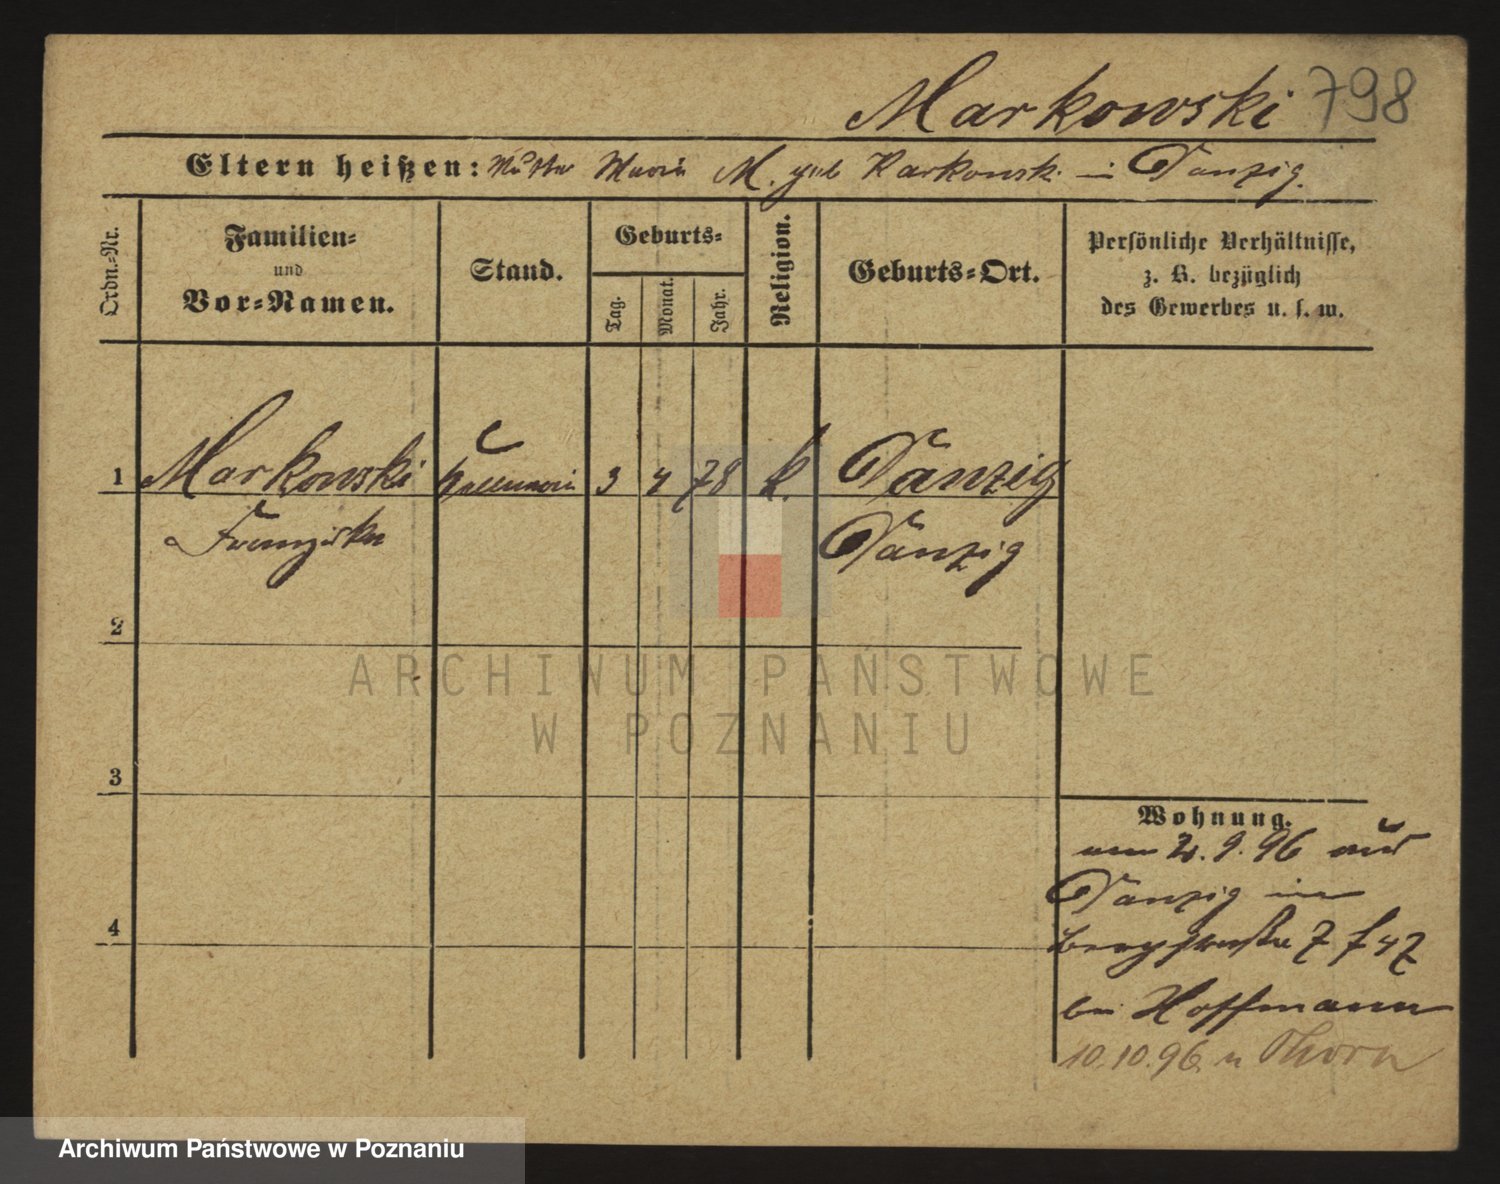 Markowski 798
Eltern heißen: Mutter Maria M. geb Karkowski in Danzig.
Ordn.-Nr.
Familien-
und
Vor-Namen.
Stand.
Geburts-
Tag.
Monat.
Jahr.
Religion.
Geburts-Ort.
Persönliche Verhältnisse,
z. B. bezüglich
des Gewerbes u. s. w.
1 Markowski 3 4 78 k. Danzig
Franziska Danzig
2
3
4
Wohnung.
am 2.9.96 aus
Danzig in
Bergstraße 7
bei Hoffmann
10.10.96. n Thorn
ARCHIWUM PAŃSTWOWE
W POZNANIU
Archiwum Państwowe w Poznaniu